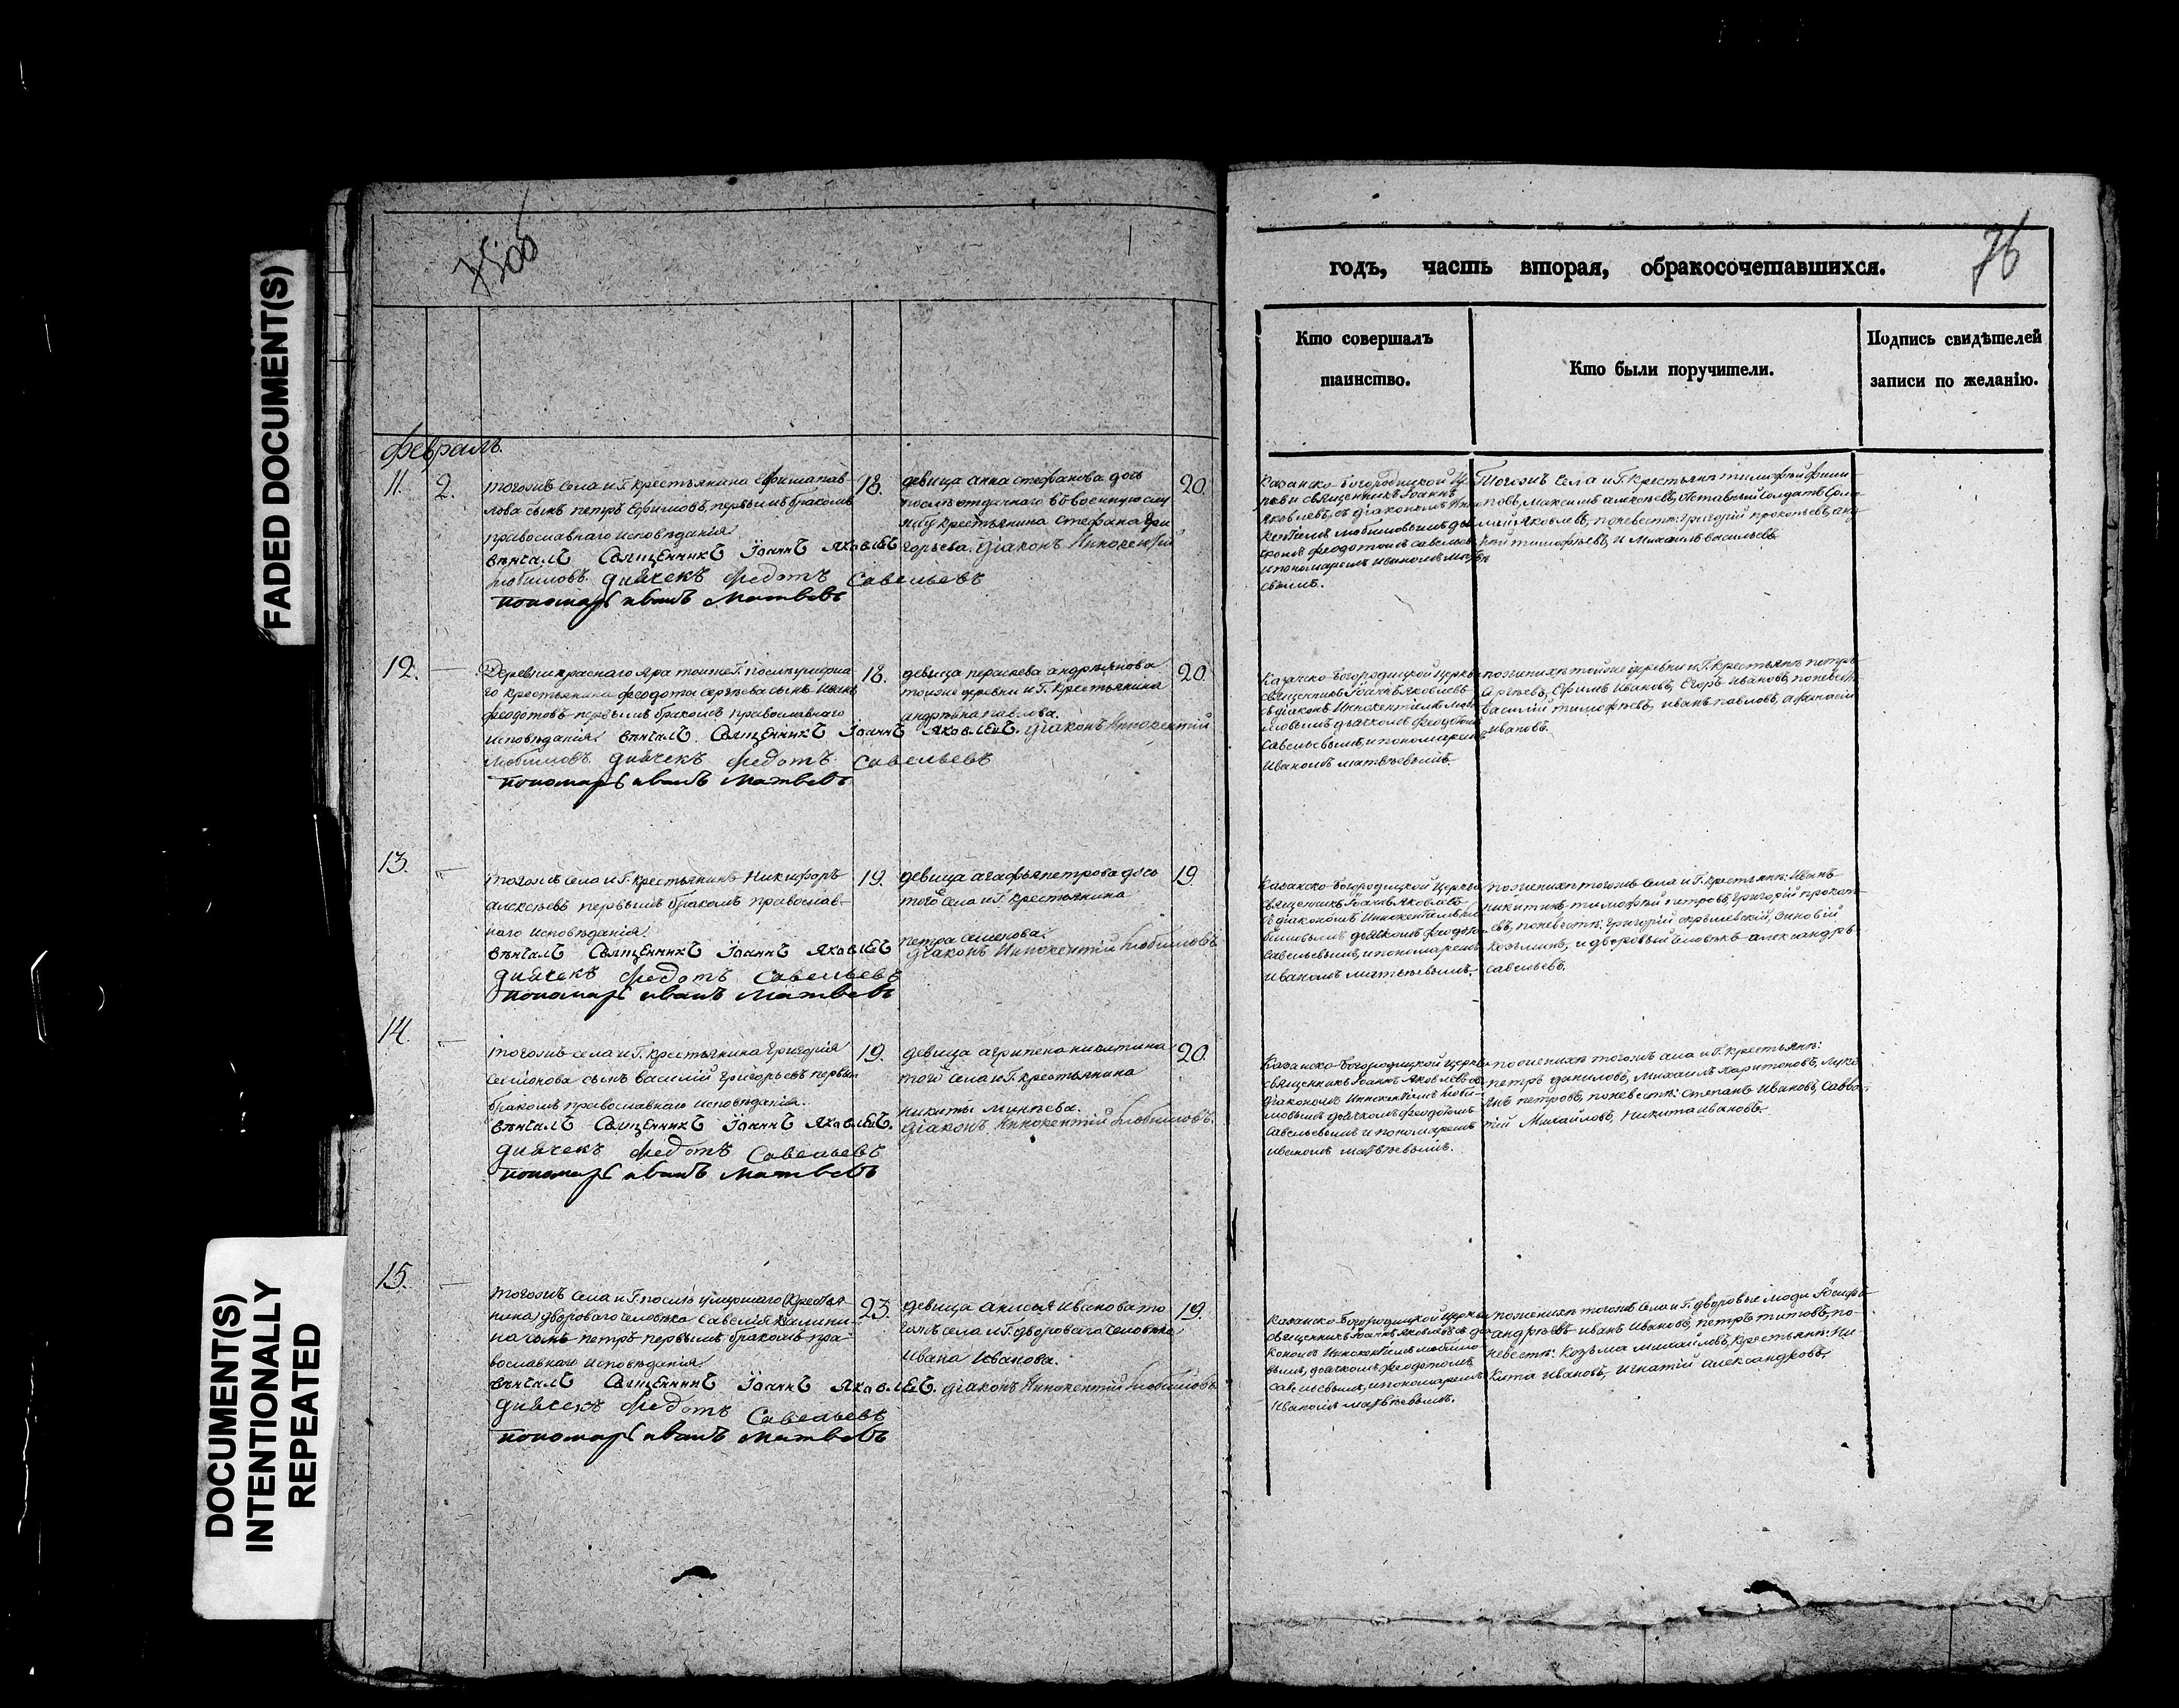 FADED DOCUMENT(S)
DOCUMENT(S)
INTENTIONALLY
REPEATED
75об
Февраль.
11. 2.
тогожъ села и Г. крестьянина Ефима пав-
лова сынъ петръ Ефимовъ, первымъ бракомъ
православнаго исповѣданія
вѣнчалъ Священникъ Іоаннъ Яковлевъ
18.
девица анна стефанова дочь
послѣ отданнаго въ военную слу
жбу крестьянина стефана Гри
горьева. діаконъ Иннокентій
Любимовъ. дьячекъ Федотъ Савельевъ
пономарь иванъ Матвевъ
20.
12.
Деревни краснаго Яра тоиже Г. послѣ умерша
го крестьянина феодота сергѣева сынъ Иванъ
феодотовъ первымъ бракомъ православнаго
исповѣданія. вѣнчалъ Священникъ Іоаннъ Яковлевъ. діаконъ Иннокентій
Любимовъ дьячекъ Федотъ Савельевъ
пономарь иванъ Матвевъ
18.
девица параскева андреянова
тоиже деревни и Г. крестьянина
андреяна павлова.
20
13.
тогожъ села и Г. крестьянинъ Никифоръ
алексѣевъ первымъ бракомъ православ-
наго исповѣданія
вѣнчалъ Священникъ Іоаннъ Яковлевъ
дьячекъ Федотъ Савельевъ
пономарь иванъ Матвевъ
19.
девица агафья петрова дочь
того села и Г. крестьянина
петра семенова.
діаконъ Иннокентій Любимовъ
19.
14.
тогожъ села и Г. крестьянина Григорія
семионова сынъ василій Григорьевъ первым
бракомъ православнаго исповѣданія.
вѣнчалъ Священникъ Іоаннъ Яковлевъ.
дьячекъ Федотъ Савельевъ
пономарь иванъ Матвевъ
19.
девица агрипена никитина
того села и Г. крестьянина
никиты минѣева.
діаконъ Иннокентій Любимовъ.
20.
15.
тогожъ села и Г. послѣ умершаго (крестья-
нина) двороваго человѣка савелія калини-
на сынъ петръ первымъ бракомъ пра-
вославнаго исповѣданія
вѣнчалъ Священникъ Іоаннъ Яковлевъ. діаконъ Иннокентій Любимовъ
дьячекъ Федотъ Савельевъ
пономарь иванъ Матвевъ
23.
девица анисия иванова то
гожъ села и Г. двороваго человѣка
ивана иванова.
19.
76
годъ, часть вторая, обракосочетавшихся.
Кто совершалъ
таинство.
Кто были поручители.
Подпись свидѣтелей
записи по желанію.
Казанско-Богородицкой Це
ркви священникъ Іоаннъ
Яковлевъ, съ діакономъ Инно
кентіемъ Любимовымъ дья
чкомъ феодотомъ савельев
и пономаремъ иваномъ матвѣ
евымъ.
Тогожъ села и Г. крестьянѣ тимофѣй фили
повъ, максимъ алексѣевъ, отставный солдатъ
Яковлевъ, поневестѣ: Григорій прокопьевъ, анд
рей тимофѣевъ, и Михаилъ васильевъ
Казанско-Богородицкой Церкви
священникъ Іоаннъ Яковлевъ
съ діакон Иннокентіемъ Люби
мовымъ дьячкомъ феодотом
савельевымъ, и пономаремъ
Иваномъ матвѣевымъ.
поженихѣ тойже деревни и Г. крестьянѣ петръ
Ефимъ Ивановъ, Егоръ ивановъ, поневестѣ
василій тимофѣевъ, иванъ павловъ, афанасій
ивановъ.
Казанско-Богородицкой Церкви
священникъ Іоаннъ Яковлевъ
съ діакономъ Иннокентіемъ Лю
бимовымъ дьячкомъ феодото
савельевымъ, и пономаремъ
иваномъ матвѣевымъ.
поженихѣ тогожъ села и Г. крестьянѣ: Иванъ
никитинъ тимофѣй петровъ, Григорій прокопь-
евъ, поневестѣ: Григорій Зиновій
козьминъ, и дворовый человѣкъ александръ
савельевъ.
Казанско-Богородицкой церкви
священникъ Іоаннъ Яковлевъ съ
діакономъ Иннокентіемъ Люби-
мовымъ дьячкомъ феодотомъ
савельевымъ и пономаремъ
иваномъ матвѣевымъ.
поженихѣ тогожъ села и Г. крестьянѣ:
петръ даниловъ, Михаилъ Харитоновъ, Луки-
янъ петровъ, поневестѣ: степанъ ивановъ, савва-
тій Михайловъ, Никита ивановъ
Казанско-Богородицкой церкви
священникъ Іоаннъ Яковлевъ съ діа
кономъ Иннокентіемъ Любимо-
вымъ, дьячкомъ феодотомъ
савельевымъ, и пономаремъ
иваномъ матвѣевымъ.
поженихѣ тогожъ села и Г. дворовые люди Іосифъ
андрѣевъ иванъ ивановъ, петръ титовъ, по-
невестѣ: козьма михайловъ, крестьянѣ: Ни-
кита ивановъ, игнатій александровъ.